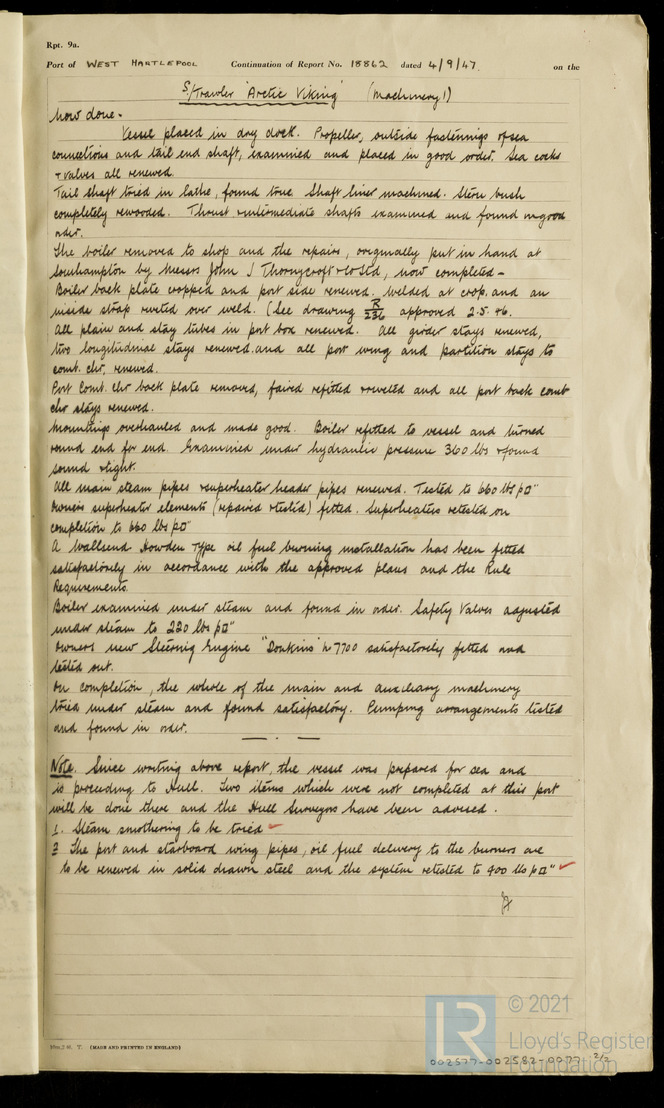 Rpt. 9a.
Port of WEST HARTLEPOOL Continuation of Report No. 18862 dated 4/9/47 on the
S/Trawler 'Arctic Viking' (Machinery 1)
Now done -
Vessel placed in dry dock. Propeller, outside fastenings of sea
connections and tail end shaft, examined and placed in good order. Sea cocks
+ valves all renewed.
Tail shaft tried in lathe, found true. Shaft liner machined. Stern bush
completely rewooded. Thrust + intermediate shafts examined and found in good
order.
The boiler removed to shop and the repairs, originally put in hand at
Southampton by Messrs John I Thornycroft + Co Ltd, now completed -
Boiler back plate cropped and port side renewed. Welded at crop, and an
inside strap riveted over weld. (See drawing R/236 approved 2.5.46.
All plain and stay tubes in port box renewed. All girder stays renewed,
two longitudinal stays renewed and all port wing and partition stays to
comb. chr, renewed.
Port Comb. chr back plate removed, faired refitted + riveted and all port back comb
chr stays renewed.
Mountings overhauled and made good. Boiler refitted to vessel and turned
round end for end. Examined under hydraulic pressure 360 lbs + found
sound + tight.
All main steam pipes + superheater header pipes renewed. Tested to 660 lbs p□"
Owners superheater elements (repaired + tested) fitted. Superheaters retested on
completion to 660 lbs p□"
A Wallsend Howden Type oil fuel burning installation has been fitted
satisfactorily in accordance with the approved plans and the Rule
Requirements.
Boiler examined under steam and found in order. Safety Valves adjusted
under steam to 220 lbs p□"
Owners new Steering Engine "Donkins" No 7700 satisfactorily fitted and
tested out.
On completion, the whole of the main and auxiliary machinery
tried under steam and found satisfactory. Pumping arrangements tested
and found in order.
Note. Since writing above report, the vessel was prepared for sea and
is proceeding to Hull. Two items which were not completed at this port
will be done there and the Hull Surveyors have been advised.
1. Steam smothering to be tried ✓
2 The port and starboard wing pipes, oil fuel delivery to the burners are
to be renewed in solid drawn steel and the system retested to 400 lbs p□" ✓
T. (MADE AND PRINTED IN ENGLAND)
© 2021
LR
Lloyd's Register
Foundation
002577-002582-0077 2/2